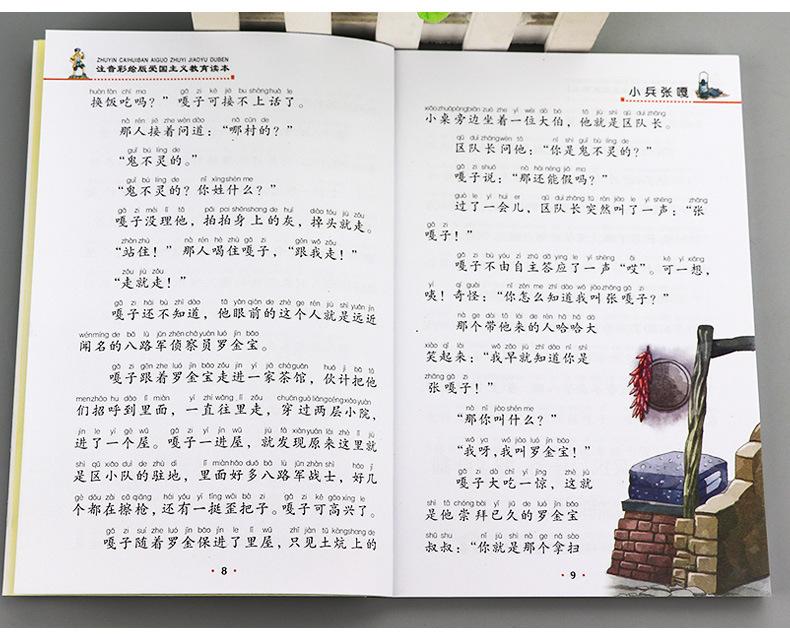 ZHUYIN CAIHUIBAN AIGUO ZHUYI JIAOYU DUBEN
注音彩绘版爱国主义教育读本
huàn fàn chī ma gā zi kě jiē bu shàng huà le
换饭吃吗？”嘎子可接不上话了。
nà rén jiē zhe wèn dào nǎ cūn de
那人接着问道：“哪村的？”
guǐ bù líng de
“鬼不灵的。”
guǐ bù líng de nǐ xìng shén me
“鬼不灵的？你姓什么？”
gā zi méi lǐ tā pāi pai shēn shang de huī diào tóu jiù zǒu
嘎子没理他，拍拍身上的灰，掉头就走。
zhàn zhù nà rén hè zhù gā zi gēn wǒ zǒu
“站住！”那人喝住嘎子，“跟我走！”
zǒu jiù zǒu
“走就走！”
gā zi hái bù zhī dào tā yǎn qián de zhè ge rén jiù shì yuǎn jìn
嘎子还不知道，他眼前的这个人就是远近
wén míng de bā lù jūn zhēn chá yuán luó jīn bǎo
闻名的八路军侦察员罗金宝。
gā zi gēn zhe luó jīn bǎo zǒu jìn yì jiā chá guǎn huǒ jì bǎ tā
嘎子跟着罗金宝走进一家茶馆，伙计把他
men zhāo hu dào lǐ miàn yì zhí wǎng lǐ zǒu chuān guò liǎng céng xiǎo yuàn
们招呼到里面，一直往里走，穿过两层小院，
jìn le yí gè wū gā zi yí jìn wū jiù fā xiàn yuán lái zhè lǐ jiù
进了一个屋。嘎子一进屋，就发现原来这里就
shì qū xiǎo duì de zhù dì lǐ miàn hǎo duō bā lù jūn zhàn shì hǎo jǐ
是区小队的驻地，里面好多八路军战士，好几
gè dōu zài cā qiāng hái yǒu yì tǐng wāi bǎ zi gā zi kě gāo xìng le
个都在擦枪，还有一挺歪把子。嘎子可高兴了。
gā zi suí zhe luó jīn bǎo jìn le lǐ wū zhǐ jiàn tǔ kàng shang de
嘎子随着罗金保进了里屋，只见土炕上的
8
小兵张嘎
xiǎo zhuō páng biān zuò zhe yí wèi dà bó tā jiù shì qū duì zhǎng
小桌旁边坐着一位大伯，他就是区队长。
qū duì zhǎng wèn tā nǐ shì guǐ bù líng de
区队长问他：“你是鬼不灵的？”
gā zi shuō nà hái néng jiǎ ma
嘎子说：“那还能假吗？”
guò le yí huì er qū duì zhǎng tū rán jiào le yì shēng zhāng
过了一会儿，区队长突然叫了一声：“张
gā zi
嘎子！”
gā zi bù yóu zì zhǔ dā yìng le yì shēng āi kě yì xiǎng
嘎子不由自主答应了一声“哎”。可一想，
yí qí guài nǐ zěn me zhī dào wǒ jiào zhāng gā zi
咦！奇怪：“你怎么知道我叫张嘎子？”
nà ge dài tā lái de rén hā hā dà
那个带他来的人哈哈大
xiào qǐ lái wǒ zǎo jiù zhī dào nǐ shì
笑起来：“我早就知道你是
zhāng gā zi
张嘎子！”
nà nǐ jiào shén me
“那你叫什么？”
wǒ ya wǒ jiào luó jīn bǎo
“我呀，我叫罗金宝！”
gā zi dà chī yì jīng zhè jiù
嘎子大吃一惊，这就
shì tā chóng bài yǐ jiǔ de luó jīn bǎo
是他崇拜已久的罗金宝
shū shu nǐ jiù shì nà ge ná sào
叔叔：“你就是那个拿扫
9